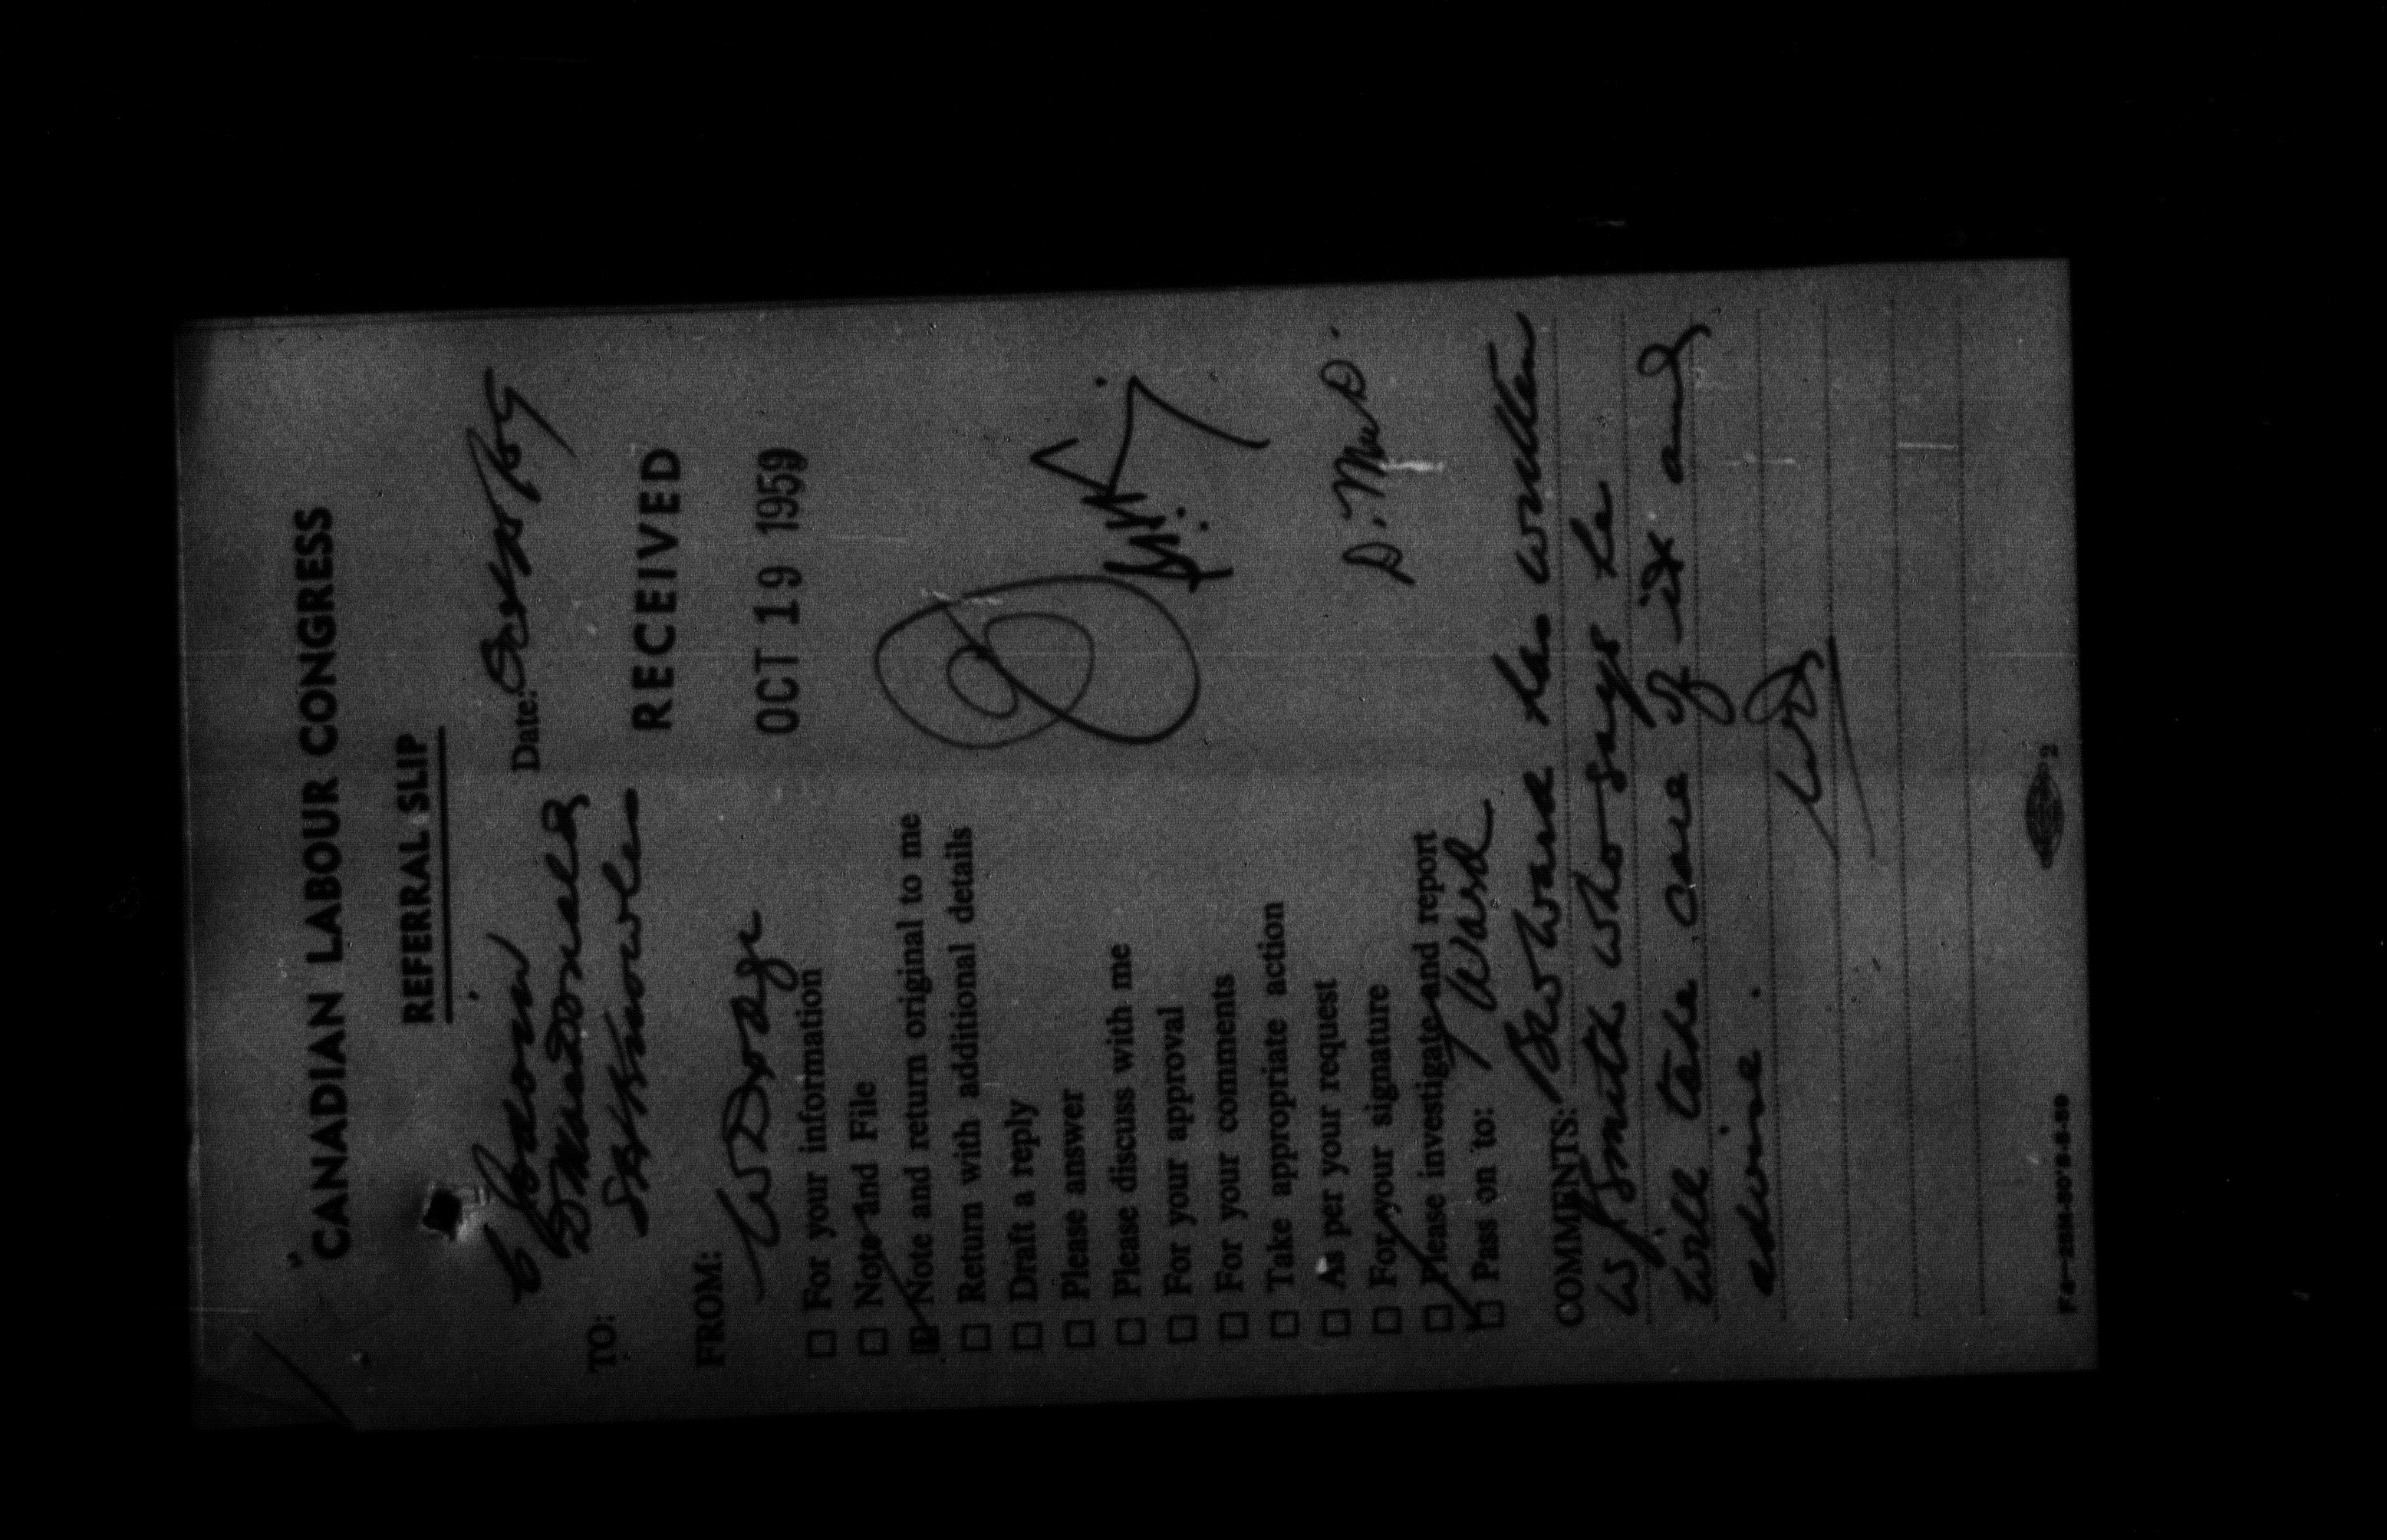 CANADIAN LABOUR CONGRESS
REFERRAL SLIP
C Jodoin Date:
D MacDonald
TO: S Knowles RECEIVED
FROM: W Dodge OCT 19 1959
For your information
Note and File
Note and return original to me
Return with additional details
Draft a reply
Please answer
Please discuss with me
For your approval
For your comments
Take appropriate action
As per your request D. McD.
For your signature
Please investigate and report
Pass on to: J Ward
COMMENTS: Bro Ward has written
W Smith who says he
will take care of it and
advise.
WD
2